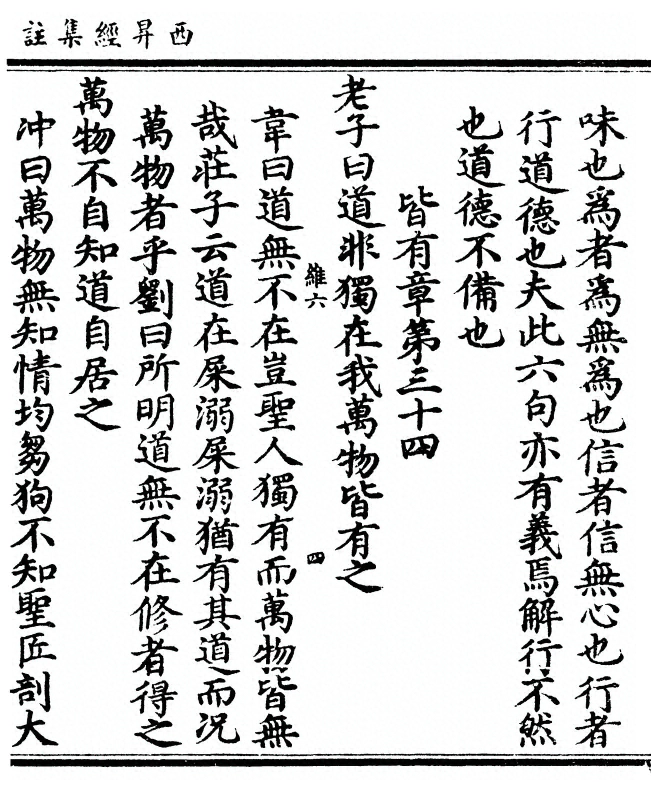 西昇經集註
味也爲者爲無爲也信者信無心也行者
行道德也夫此六句亦有義焉解行不然
也道德不備也
皆有章第三十四
老子曰道非獨在我萬物皆有之
維六
四
韋曰道無不在豈聖人獨有而萬物皆無
哉莊子云道在屎溺屎溺猶有其道而况
萬物者乎劉曰所明道無不在修者得之
萬物不自知道自居之
冲曰萬物無知情均芻狗不知聖匠剖大